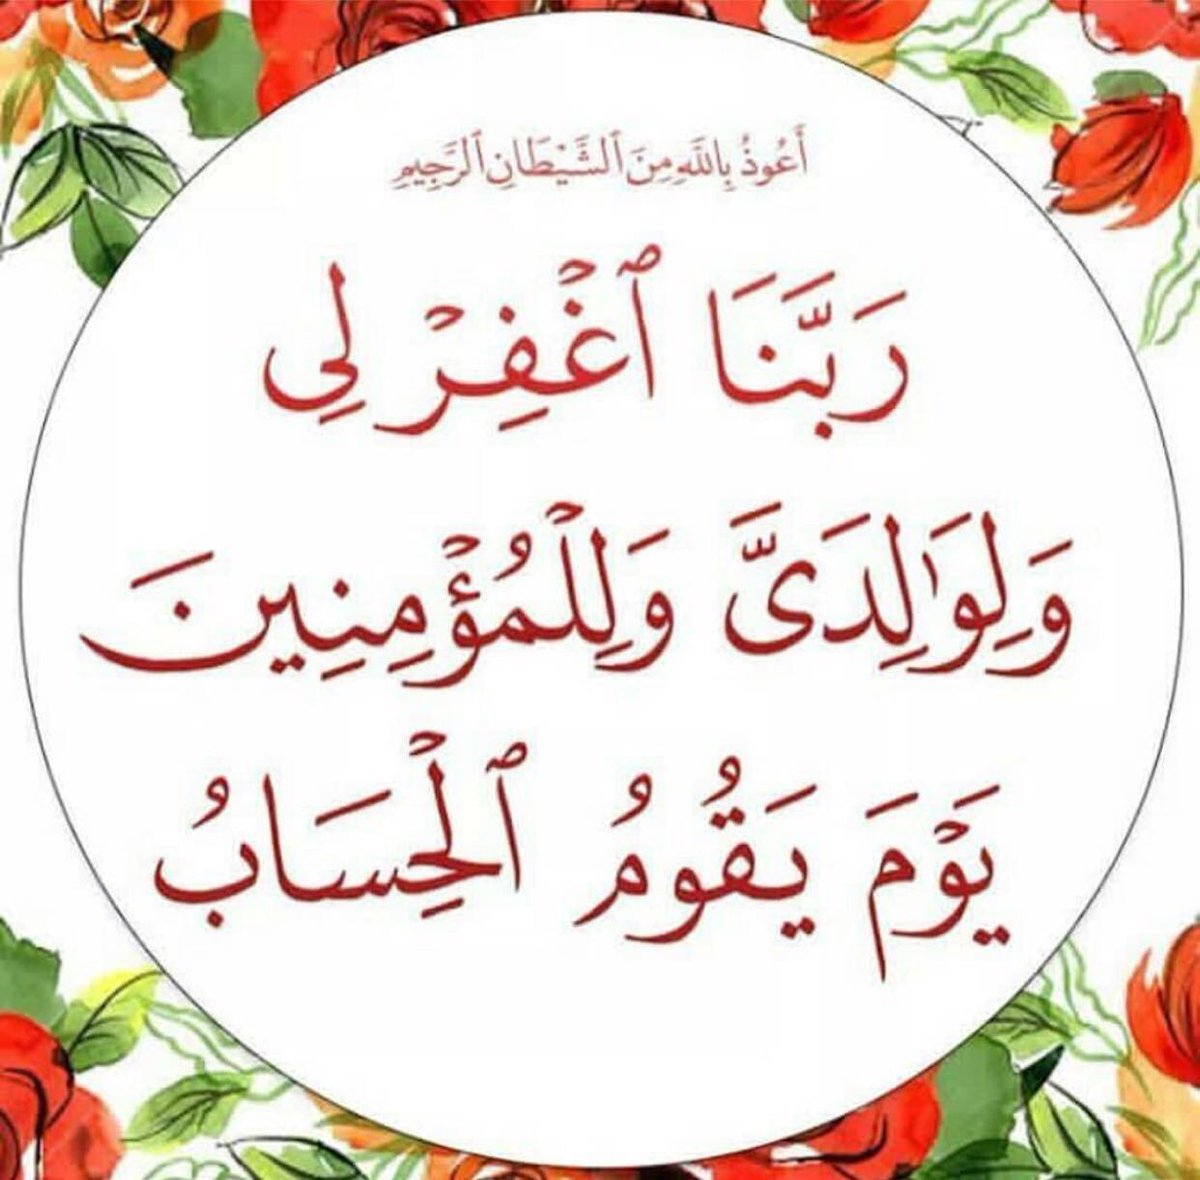 أَعُوذُ بِاللَّهِ مِنَ ٱلشَّيْطَانِ ٱلرَّجِيمِ
رَبَّنَا ٱغْفِرْ لِى
وَلِوَٰلِدَىَّ وَلِلْمُؤْمِنِينَ
يَوْمَ يَقُومُ ٱلْحِسَابُ